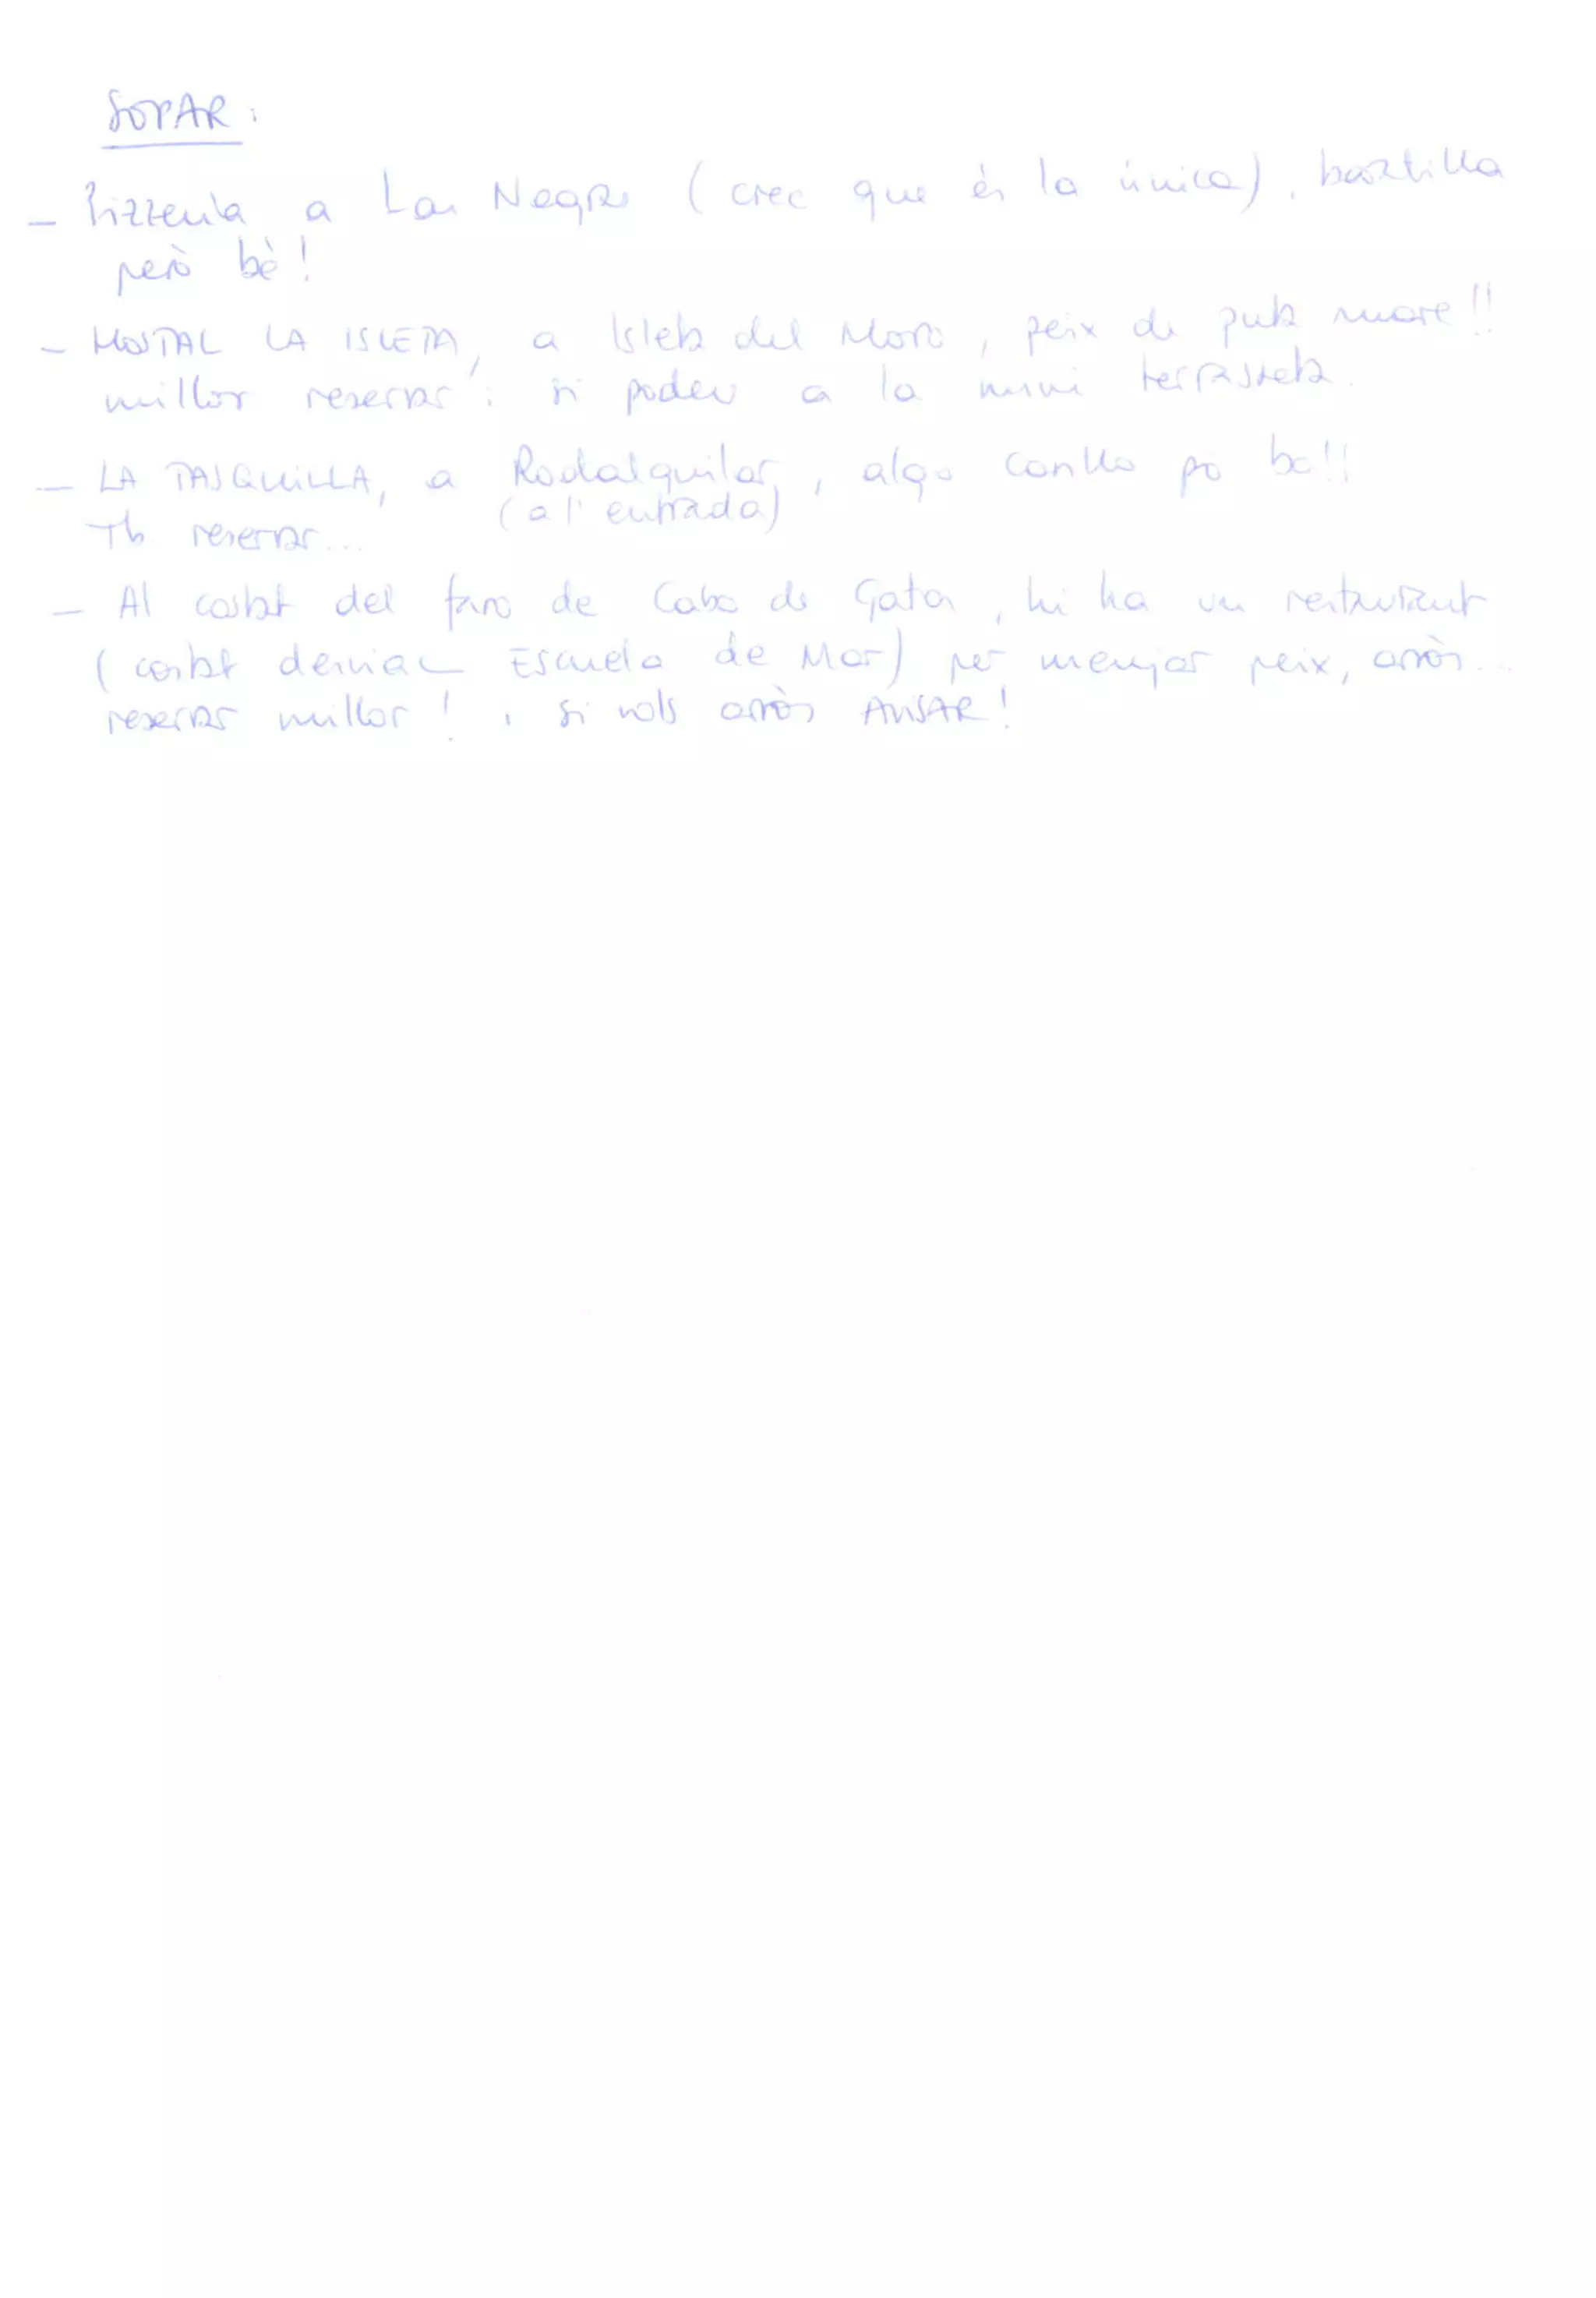 SOPAR:
- Pizzeria a Las Negras (crec que és la única). baratilla
però bé!
- HOSTAL LA ISLETA, a Isleta del Moro, peix de puta mare!!
millor reservar i si podeu a la mini terrasseta.
- LA TASQUILLA, a Rodalquilar, algo carillo pro bo!!
(a l'entrada)
Tb reservar...
- Al costat del faro de Cabo de Gata, hi ha un restaurant
(costat Escuela de Mar) per menjar peix, arròs...
reservar millor! i si vols arròs AVISAR!